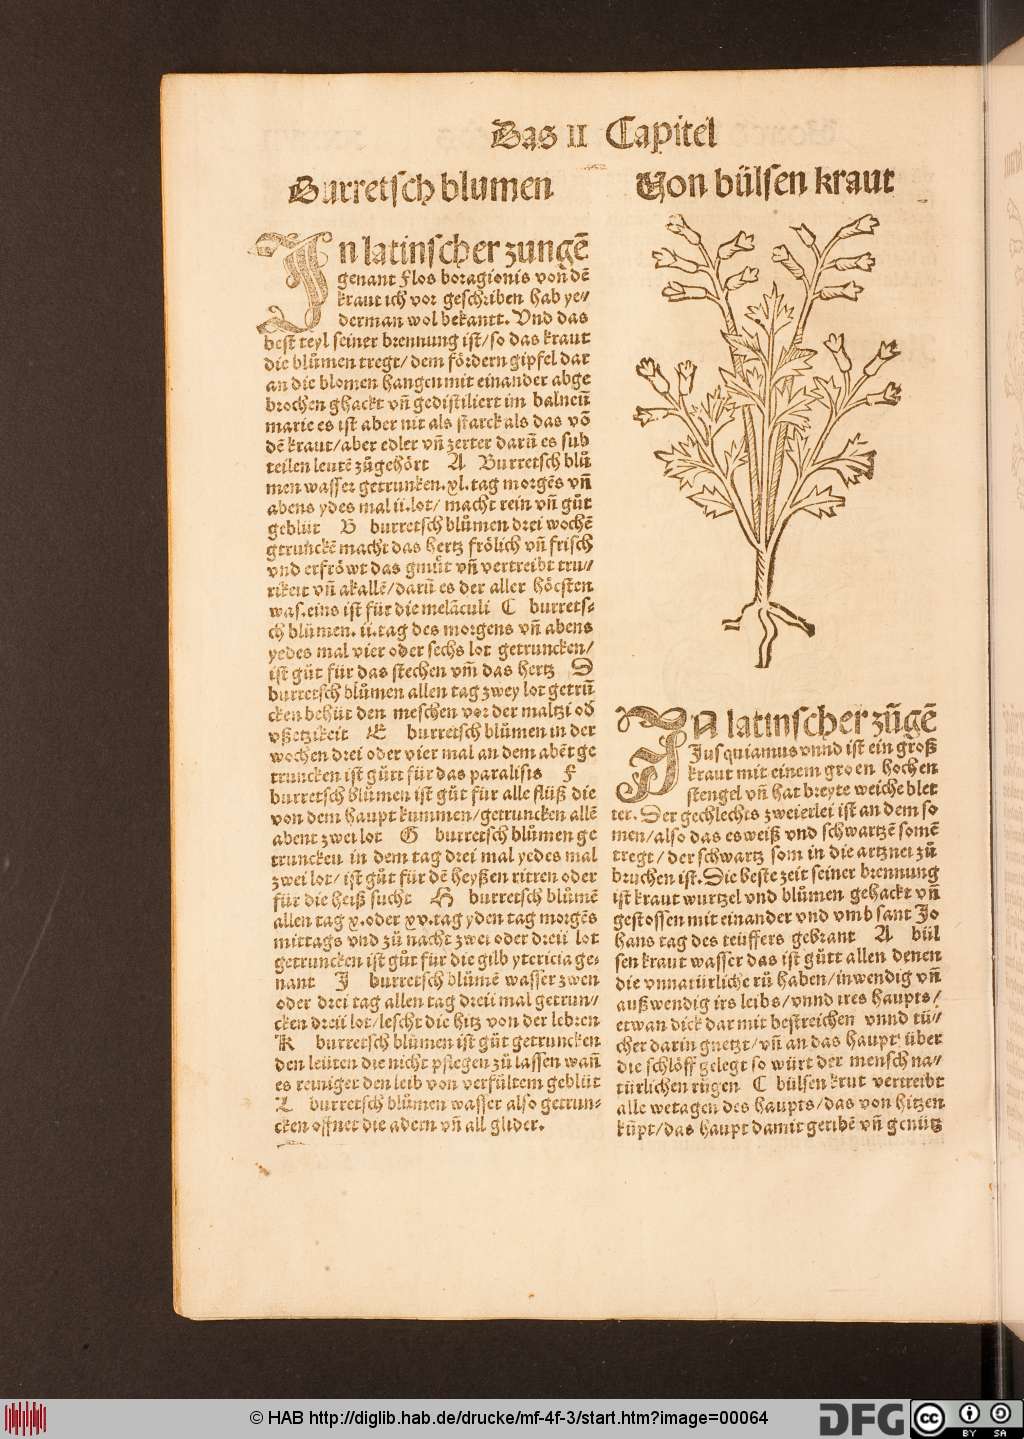 Das II Capitel
Burretsch blumen
In latinscher zungē
genant Flos boragionis von dē
kraut ich vor geschriben hab ye//
derman wol bekantt. Vnd das
best teyl seiner brennung ist/so das kraut
die blůmen tregt/dem fördern gipfel dar
an die blomen hangen mit einander abge
brochen ghackt vñ gedistiliert im balneū
marie es ist aber nit als starck als das vō
dē kraut/aber edler vñ zerter darū es sub
teilen leutē zůgehört A Burretsch blů
men wasser getruncken.xl.tag morgēs vñ
abens ydes mal ii.lot/macht rein vñ gůt
geblüt B burretsch blůmen drei wochē
gtrunckē macht das hertz frölich vñ frisch
vnd erfröwt das gmüt vñ vertreibt tru//
rikeit vñ akallē/darū es der aller höcsten
was.eins ist für die melāculi C burrets-
ch blůmen.ii.tag des morgens vñ abens
yedes mal vier oder sechs lot getruncken/
ist gůt für das stechen vm̄ das hertz D
burretsch blůmen allen tag zwey lot getrū
cken behüt den meschen vor der maltzi od
vßetzikeit E burretsch blůmen in der
wochen drei oder vier mal an dem abēt ge
truncken ist gůtt für das paralisis F
burretsch blůmen ist gůt für alle flüß die
von dem haupt kummen/getruncken allē
abent zwei lot G burretsch blůmen ge
truncken in dem tag drei mal yedes mal
zwei lot/ist gůt für dē heyßen ritren oder
für die heiß sucht H burretsch blůmē
allen tag x.oder xv.tag yden tag morgēs
mittags vnd zů nacht zwei oder dreii lot
getruncken ist gůt für die gilb ytericia ge-
nant I burretsch blůmē wasser zwen
oder drei tag allen tag dreii mal getrun//
cken dreii lot/lescht die hitz von der lebren
K burretsch blůmen ist gůt getruncken
den leüten die nicht pflegen zů lassen wañ
es reiniget den leib von verfültem geblüt
L burretsch blůmen wasser also getrun-
cken offnet die adern vñ all glider.
Von bülsen kraut
IN latinscher zūgē
Jusquiamus vnnd ist ein groß
kraut mit einem groen hochen
stengel vñ hat breyte weiche blet
ter. Der gechlechts zweierlei ist an dem so
men/also das es weiß vnd schwartzē somē
tregt/der schwartz som in die artznei zů
bruchen ist. Die beste zeit seiner brennung
ist kraut wurtzel vnd blůmen gehackt vñ
gestossen mit einander vnd vmb sant Jo
hans tag des teüffers gebrant A bül
sen kraut wasser das ist gůtt allen denen
die vnnatürliche rů haben/inwendig vñ
außwendig irs leibs/vnnd ires haupts/
etwan dick dar mit bestreichen vnnd tü//
cher darin gnetzt/vñ an das haupt über
die schlöff gelegt so würt der mensch na-
türlichen rügen C bülsen krut vertreibt
alle wetagen des haupts/das von hitzen
küpt/das haupt damit geribē vñ genütz
© HAB http://diglib.hab.de/drucke/mf-4f-3/start.htm?image=00064
DFG
cc BY SA